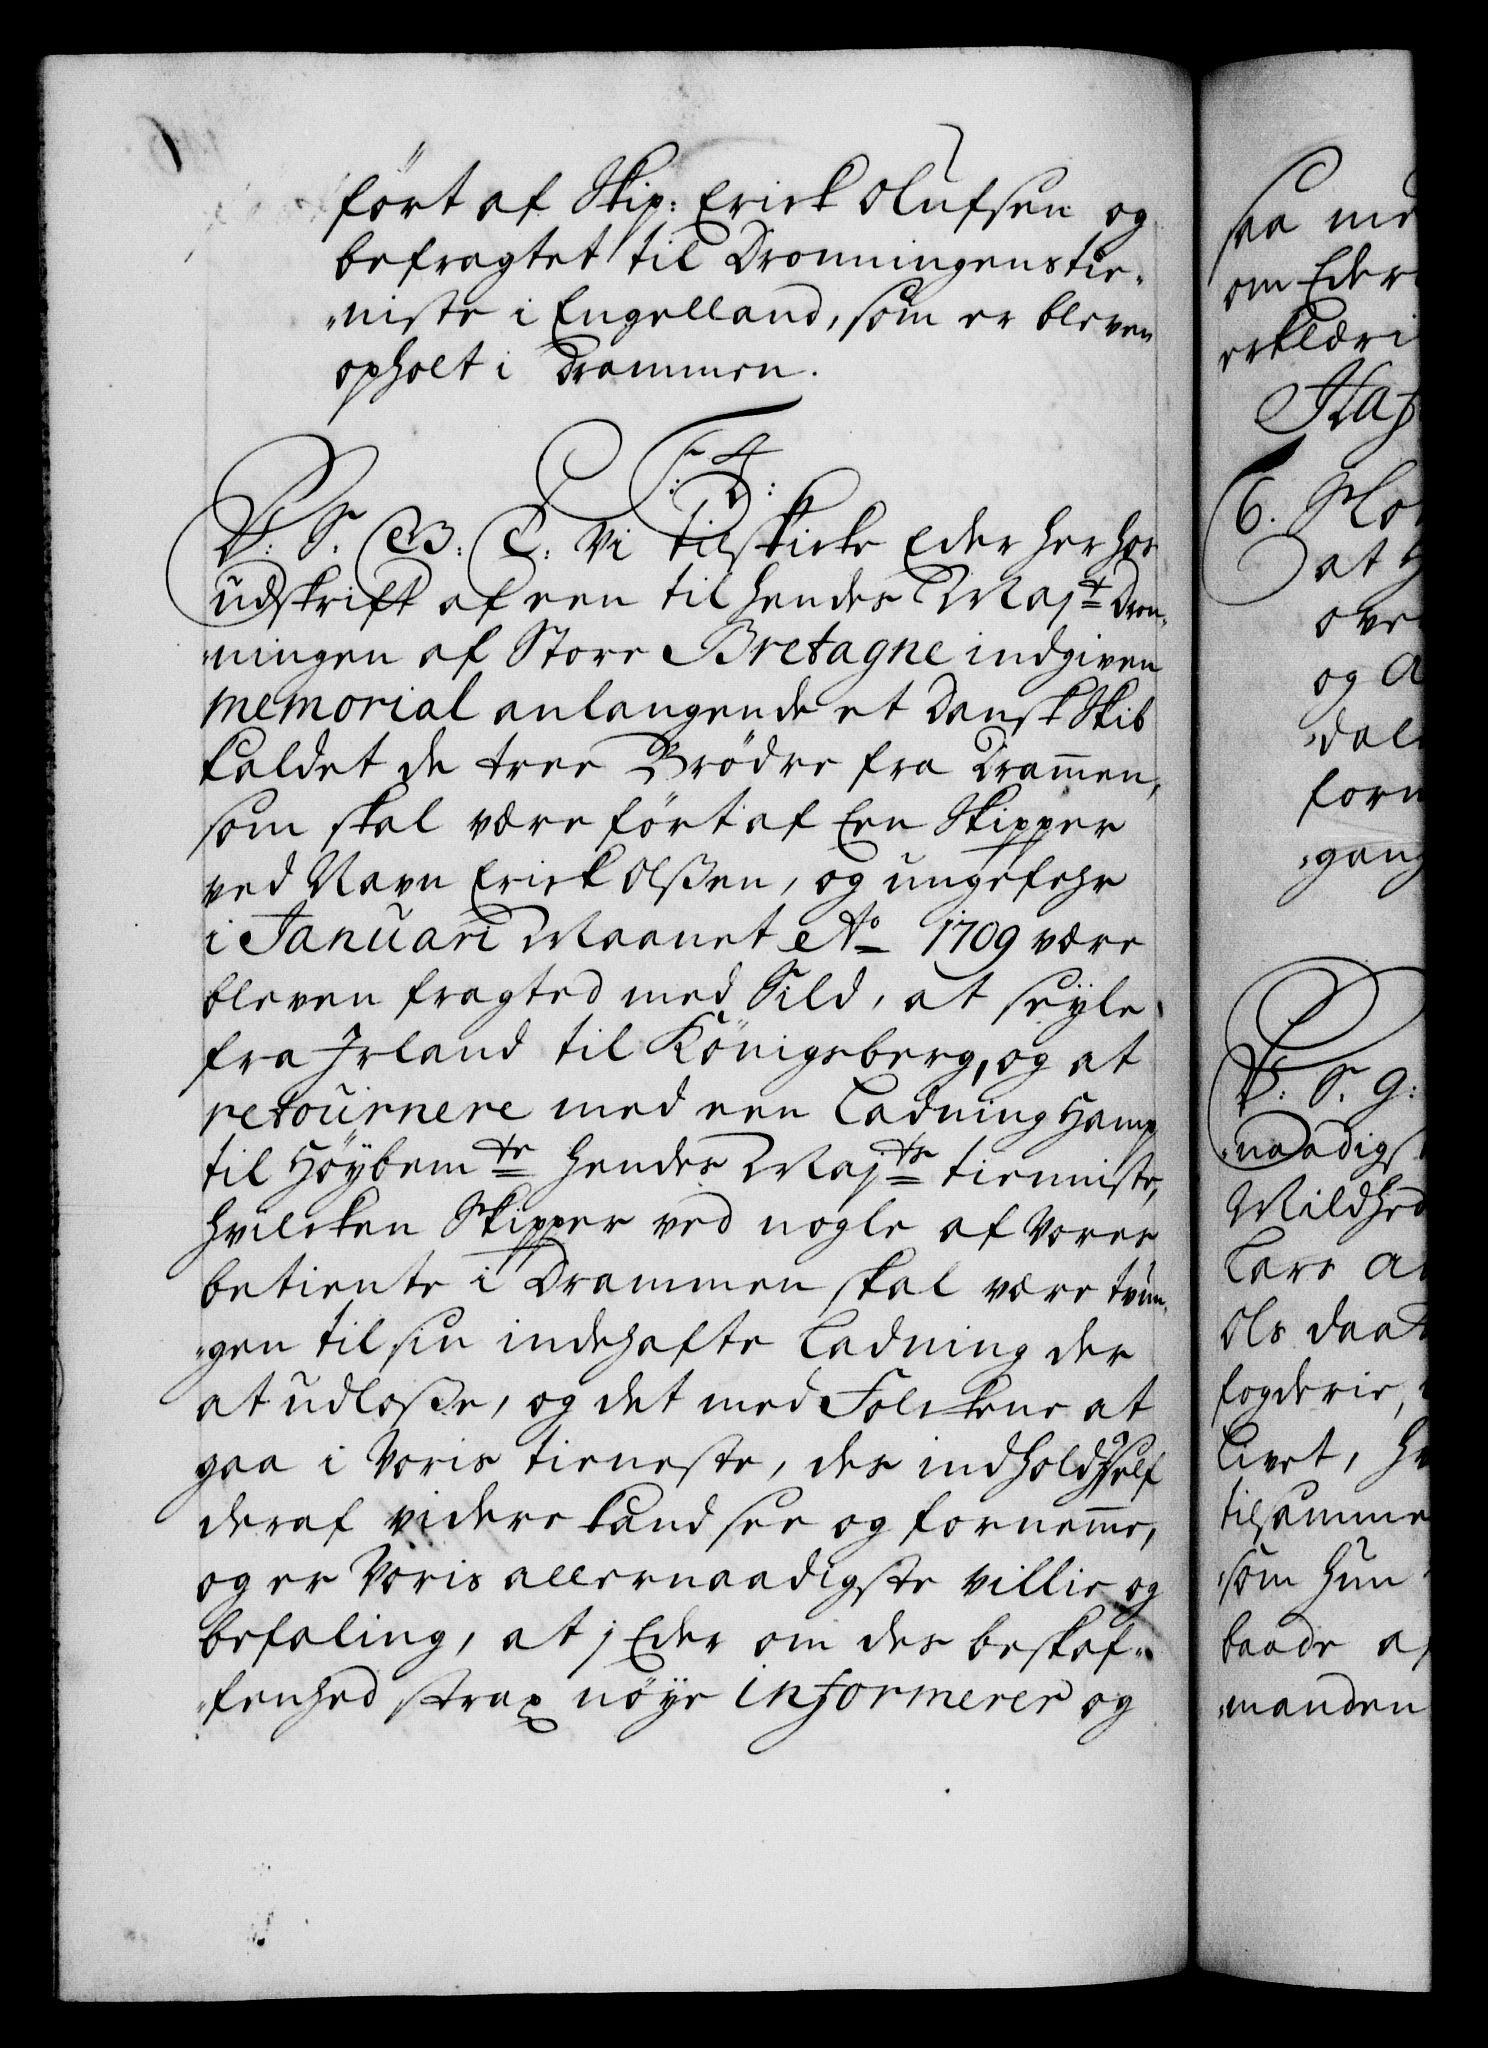 ført af Skip: Erick Olufsen og
befragtet til Dronningens tie-
-niste i Engelland, som er bleven
opholt i Drammen.
F 4
D:
V: S. G B: T: Vi tilskicke Eder her hos
udskrift af een til hendes Mayt Dron-
-ningen af Store Bretagne indgiven
memorial anlangende et Dansk Skib
kaldet de tree Brødre fra Dramen,
som skal være ført af Een Skipper
ved Navn Erick Olßen, og ungefehr
i Januari Maanet Ao 1709 være
bleven fragted med Sild, at seyle
fra Irland til Königsberg, og at
retournere med een Ladning Hamp
til Høybemte hendes Mayts tienniste,
hvilcken Skipper ved nogle af Vores
betiente i Drammen skal være tvun-
-gen til sin indehafte Ladning der
at udloße, og det med Folckene at
gaa i Voris tieneste, des indhold j self
deraf videre kand see og fornemme,
og er Voris allernaadigste villie og
befaling, at j Eder om des beskaf-
-fenhed strax nøye informerer og
saa me
om Eder
erklæri
Haf
6. Slo
at H
ove
og A
-dal
forn
-gang
V: S. G:
-naadigs
Mildhed
Lars A
Ols daat
fogderie,
Livet, h
tilsamme
som hun
baade a
-manden